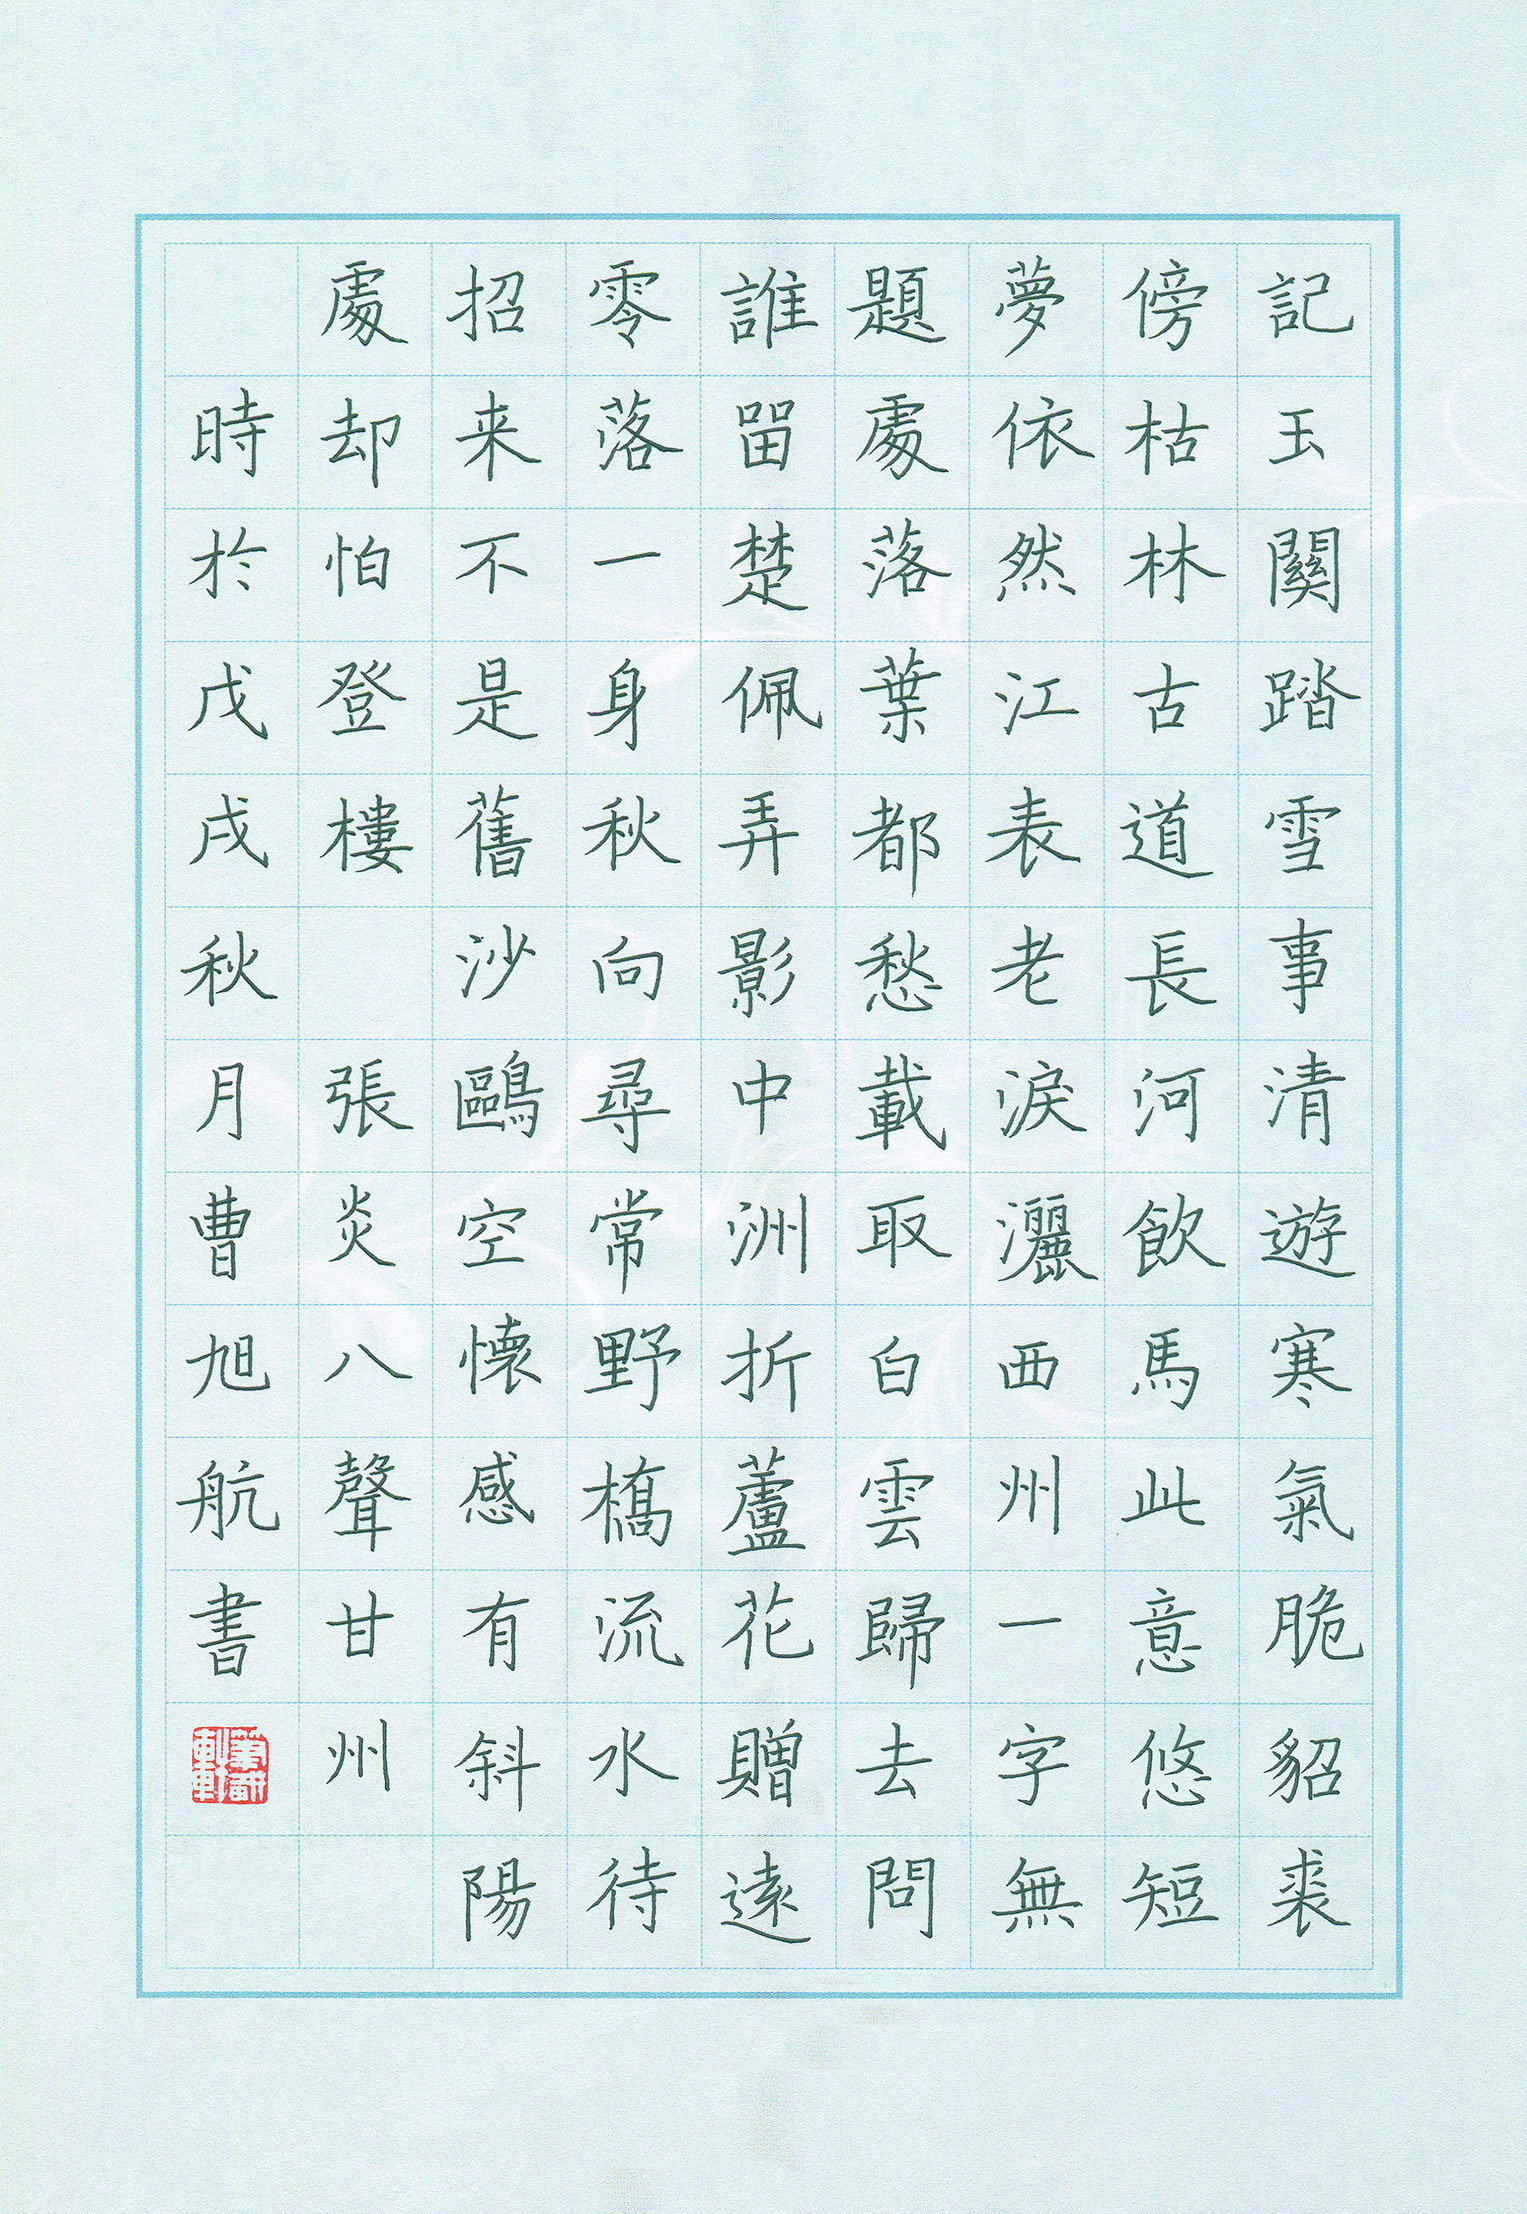 記玉關踏雪事清遊寒氣脆貂裘
傍枯林古道長河飲馬此意悠短
夢依然江表老淚灑西州一字無
題處落葉都愁載取白雲歸去問
誰留楚佩弄影中洲折蘆花贈遠
零落一身秋向尋常野橋流水待
招来不是舊沙鷗空懷感有斜陽
處却怕登樓 張炎八聲甘州
時於戊戌秋月曹旭航書